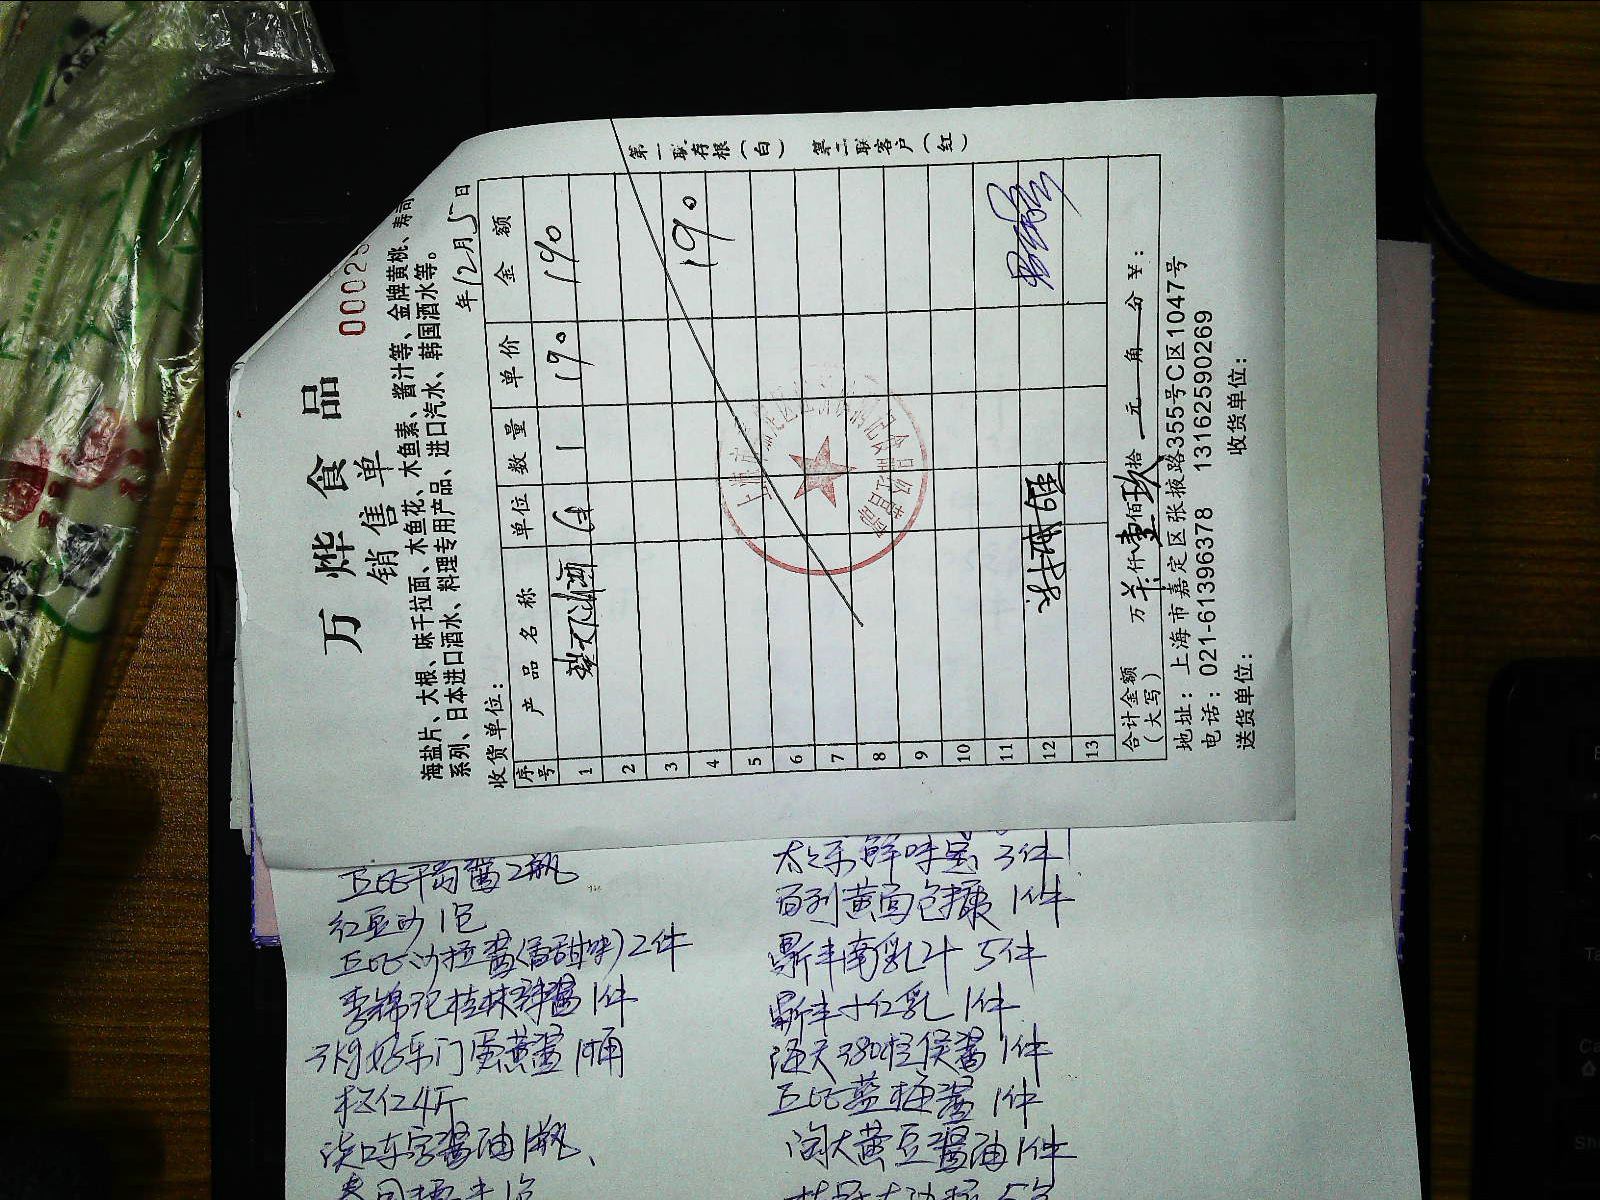 万 烨 食 品
销 售 单
00025
海盐片、大根、味千拉面、木鱼花、木鱼素、酱汁等、金牌黄桃、寿司
系列、日本进口酒水、料理专用产品、进口汽水、韩国酒水等。
收货单位： 年12月5日
序号 产 品 名 称 单位 数 量 单 价 金 额
1 件 1 190 190
2
3
4 190
5
6
7
8
9
10
11
12
13
合计金额（大写） 万 仟壹佰玖拾 元 角 分 ￥：
地址：上海市嘉定区张掖路355号C区1047号
电话：021-61396378 13162590269
送货单位： 收货单位：
第一联存根（白） 第二联客户（红）
丘比千岛酱2瓶
红豆沙1包
丘比沙拉酱(香甜味)2件
李锦记桂林辣酱1件
3kg好乐门蛋黄酱1桶
松仁4斤
淡口东字酱油1瓶、
太太乐鲜味宝3件
百利黄面包糠1件
鼎丰南乳汁5件
鼎丰寸红乳1件
海天380柱侯酱1件
丘比蓝梅酱1件
淘大黄豆酱油1件